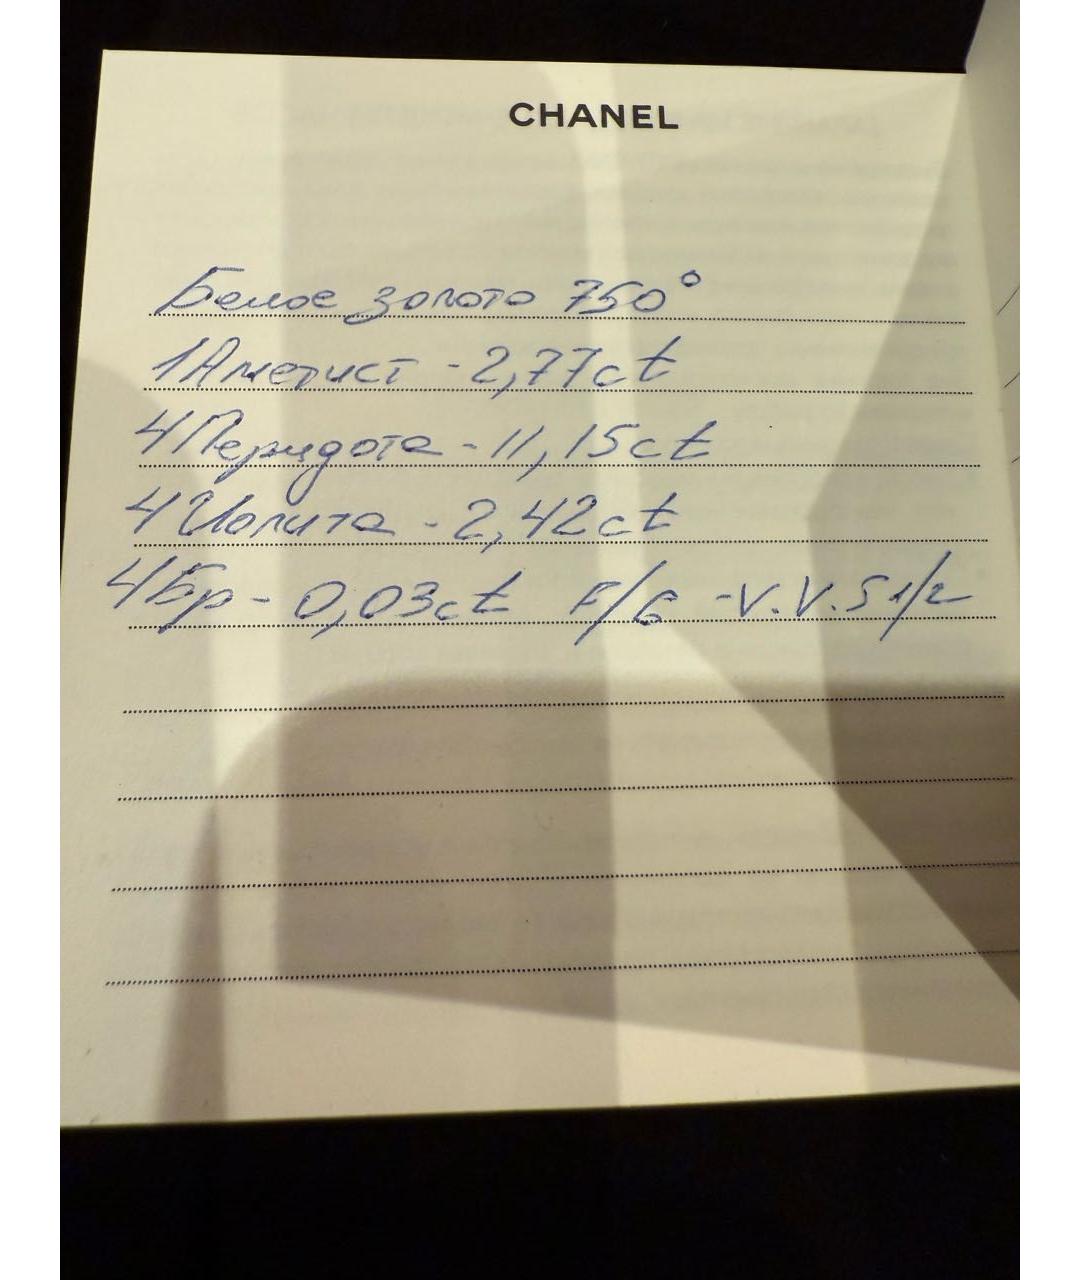 CHANEL
Белое золото 750°
1 Аметист - 2,77ct
4 Перидота - 11,15ct
4 Иолита - 2,42ct
4 Бр - 0,03ct F/G - V.V.S 1/2